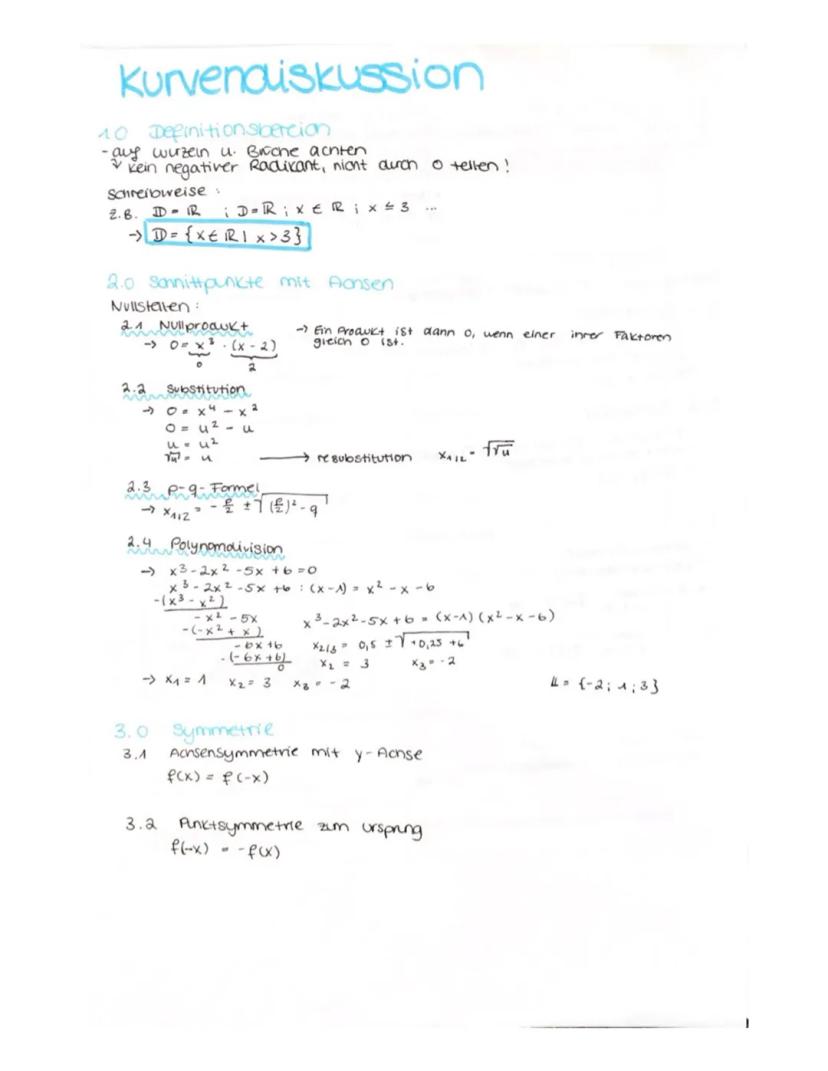 Kurvendiskussion
1.0 Definitionsbereich
- auf Wurzeln u. Brüche achten
↳ kein negativer Radikant, nicht durch 0 teilen!
Schreibweise :
z.B. 𝔻 = ℝ ; D = ℝ ; x ∈ ℝ ; x ≤ 3 ...
→ 𝔻 = {x ∈ ℝ | x > 3}
2.0 Schnittpunkte mit Achsen
Nullstellen :
2.1 Nullprodukt → Ein Produkt ist dann 0, wenn einer ihrer Faktoren
→ 0 = x³ · (x - 2) gleich 0 ist.
0 2
2.2 Substitution
→ 0 = x⁴ - x²
0 = u² - u
u = u²
√u = u → resubstitution x₁,₂ = √√u
2.3 p-q-Formel
→ x₁,₂ = - p/2 ± √(p/2)² - q
2.4 Polynomdivision
→ x³ - 2x² - 5x + 6 = 0
x³ - 2x² - 5x + 6 : (x - 1) = x² - x - 6
-(x³ - x²)
- x² - 5x x³ - 2x² - 5x + 6 = (x - 1) (x² - x - 6)
-(-x² + x)
- 6x + 6 x₂/₃ = 0,5 ± √+0,25 + 6
-(-6x + 6) x₂ = 3 x₃ = -2
0
→ x₁ = 1 x₂ = 3 x₃ = -2 𝕃 = {-2; 1; 3}
3.0 Symmetrie
3.1 Achsensymmetrie mit y-Achse
f(x) = f(-x)
3.2 Punktsymmetrie zum Ursprung
f(-x) = -f(x)